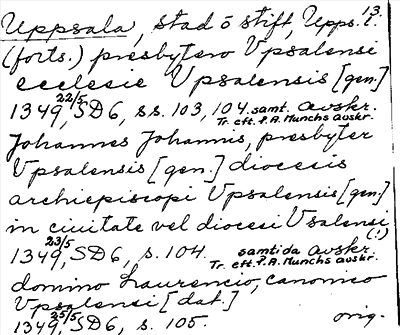 13.
Uppsala, stad o stift, Upps. l.
(forts.) presbytero Vpsalensi
ecclesie Vpsalensis [gen.]
1349 22/5, SD6, ss. 103, 104. samt. avskr.
Tr. eft. P.A. Munchs avskr.
Johannes Johannis, presbyter
Vpsalensis [gen.] diocesis
archiepiscopi Vpsalensis [gen.]
in ciuitate vel diocesi Vsalensi
(!)
1349 23/5, SD6, s. 104. samtida avskr.
Tr. eft. P.A. Munchs avskr.
domino Laurencio, canonico
Vpsalensi [dat.]
1349 25/5, SD6, s. 105. orig.